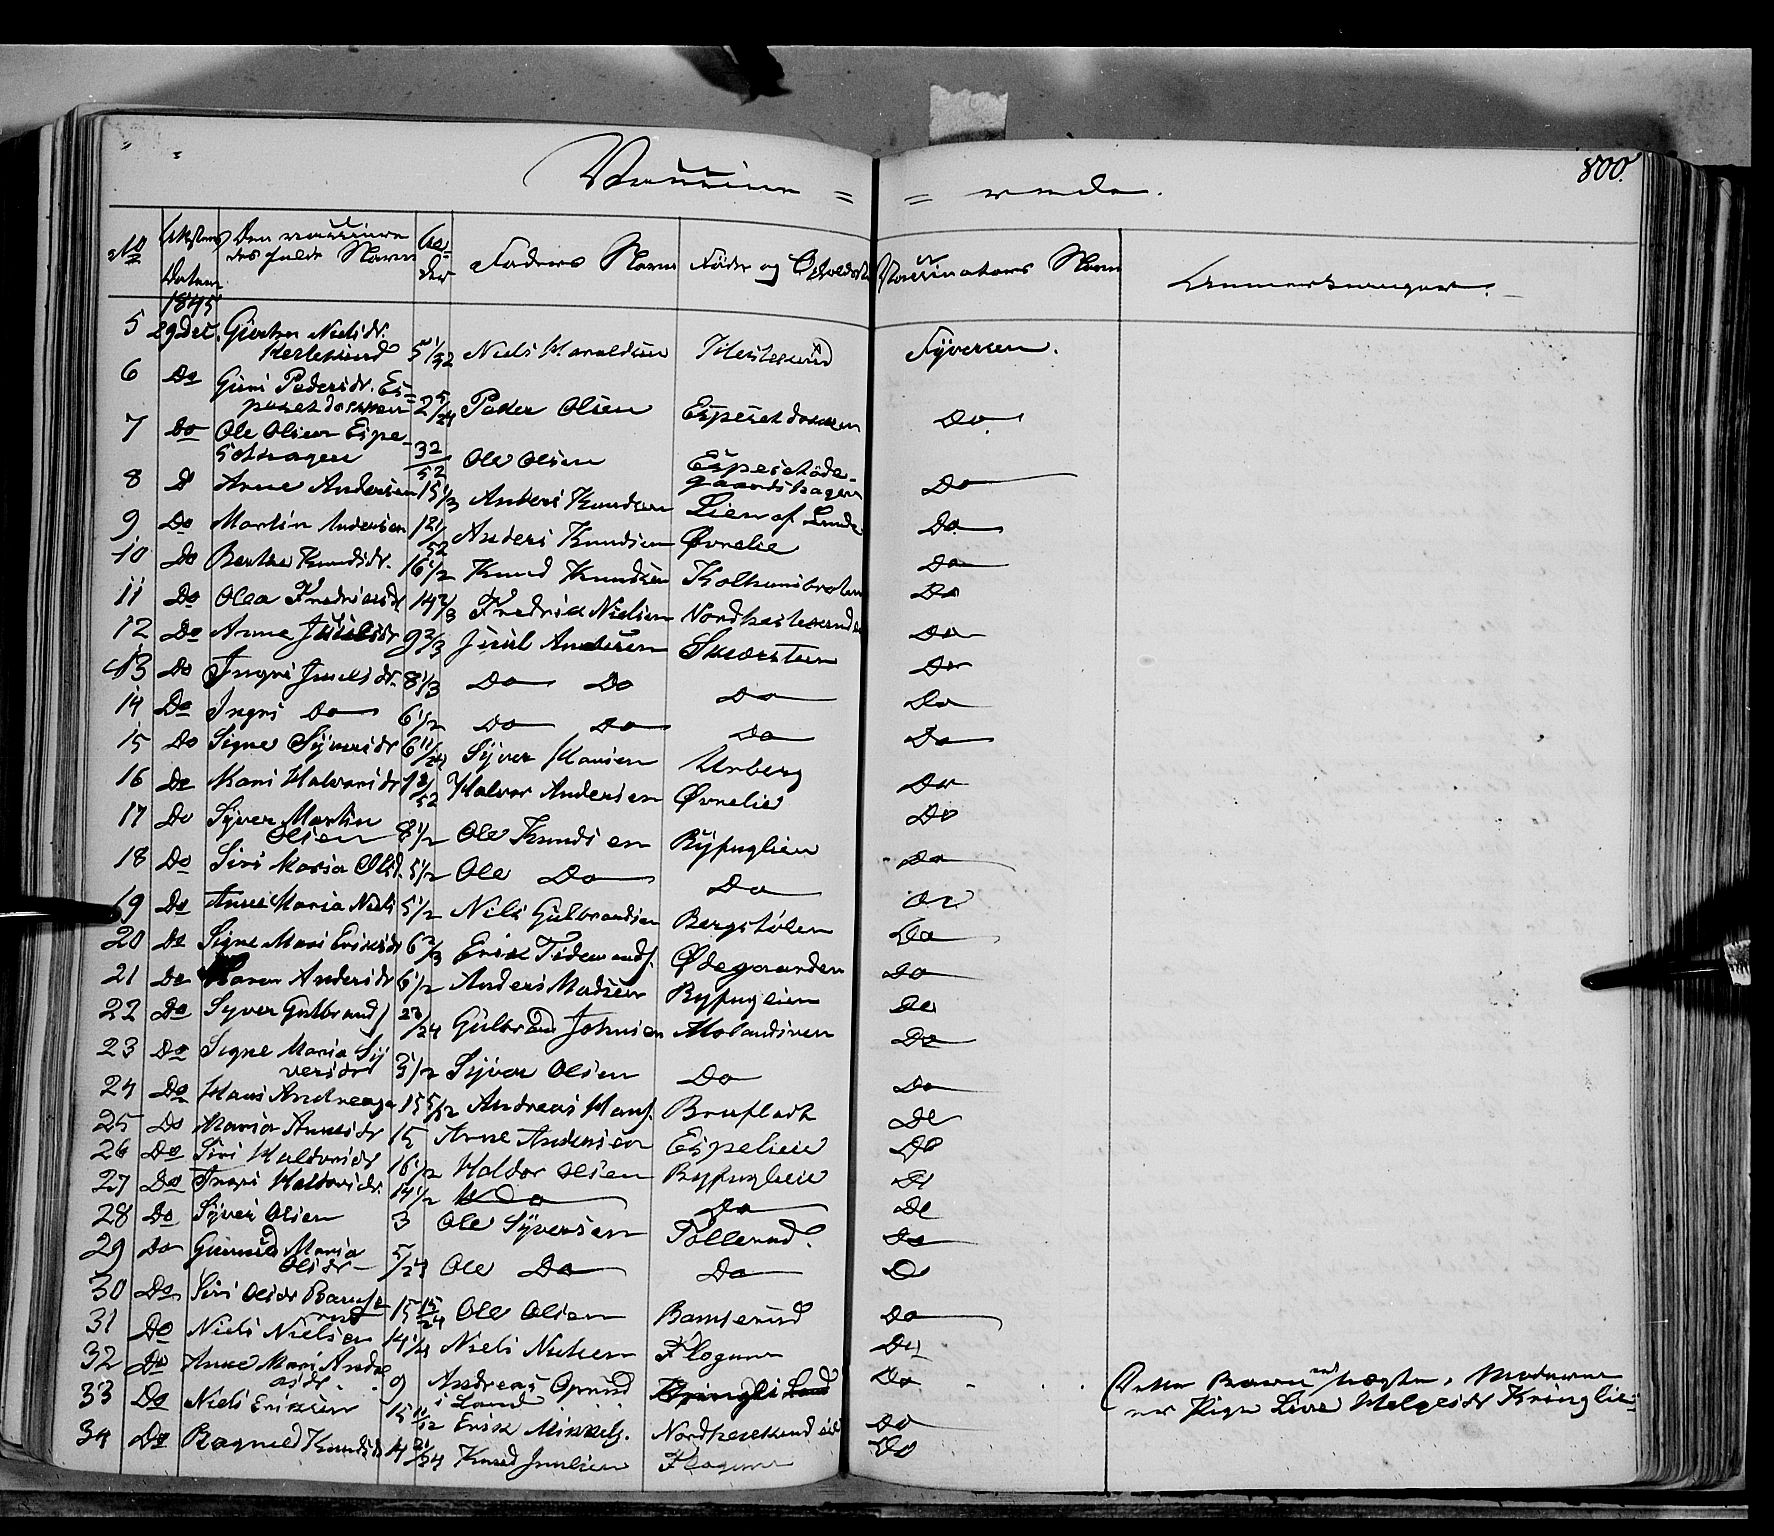 800.
Vaccine = = rede.
No Attestens Datum Den vaccinere des fulde Navn Alder Faders Navn Føde og Opholdssted Vaccinateurs Navn Anmerkninger.
1845
5 29 Dec. Nielsdr. 5 1/52 Niels Haraldsen Syversen.
6 Do Guri Pedersdr. Es= 2 5/24 Peder Olsen Do
7 Do Ole Olsen Espe= 32/52 Ole Olsen Espesetøde=
gaardshagen Do
8 D Arne Andersen 15 1/3 Anders Knudsen Lien af Lunde Do
9 Do Martin Andersen Anders Knudsen Øvrelie Do
10 Do Berthe Knudsdr. 16 1/2 Knud Knudsen Do
11 Do Olea Fredriksdr 14 2/3 Fredrik Nielsen Do
12 Do Anne Juulsdr 9 2/3 Juul Andersen Do
13 Do Ingri Juulsdr. 8 1/3 Do Do Do Do
14 Do Ingri Do 6 1/2 Do Do Do Do
15 Do Signe Syversdr 6 11/24 Syver Hansen Urberg Do
16 Do Kari Halvorsdr Halvor Andersen Øvrelie Do
17 Do Syver Martin
Olsen 8 1/2 Ole Knudsen Byfuglien Do
18 Do Siri Maria Olsd. 5 1/2 Ole Do Do Do
19 Do Anne Maria Niels 5 1/2 Niels Gulbrandsen Bergstølen Do
20 Do Signe Mari Eriksdr 6 2/3 Erik Tidemands. Ødegaarden Do
21 Do Maren Andersdr 6 1/2 Anders Madsen Byfuglien Do
22 Do Syver Gulbrands 23/24 Gulbrand Johnsen Do
23 Do Signe Maria Sy
versdr 3 1/2 Syver Olsen Do Do
24 Do Hans Andreas 15 5/12 Andreas Hans. Brufladt De
25 Do Maria Arnesdr 15 Arne Andersen Espelien Do
26 Do Siri Haldorsdr 16 1/2 Haldor Olsen Byfuglien Do
27 Do Ingri Haldorsdr. 14 1/2 Do Do De
28 Do Syver Olsen 3 Ole Syversen Tollerud. Do
29 Do Gunnild Maria
Olsdr 5/24 Ole Do Do Do
30 Do Siri Olsdr Bamse
rud 15 15/24 Ole Olsen Bamserud Do
31 Do Niels Nielsen 14 1/24 Niels Nielsen Klogum Do
32 Do Anne Mari Andre
asdr. 9 Andreas Oprud
i Land Do Dette Barn er uægte, Moderen
er Pige Live Helgesdr Kringlie=
33 Do Niels Eriksen 15 11/12 Erik Mikkels. Do
34 Do Ragnild Knudsdr Knud Juulsen Klogum Do